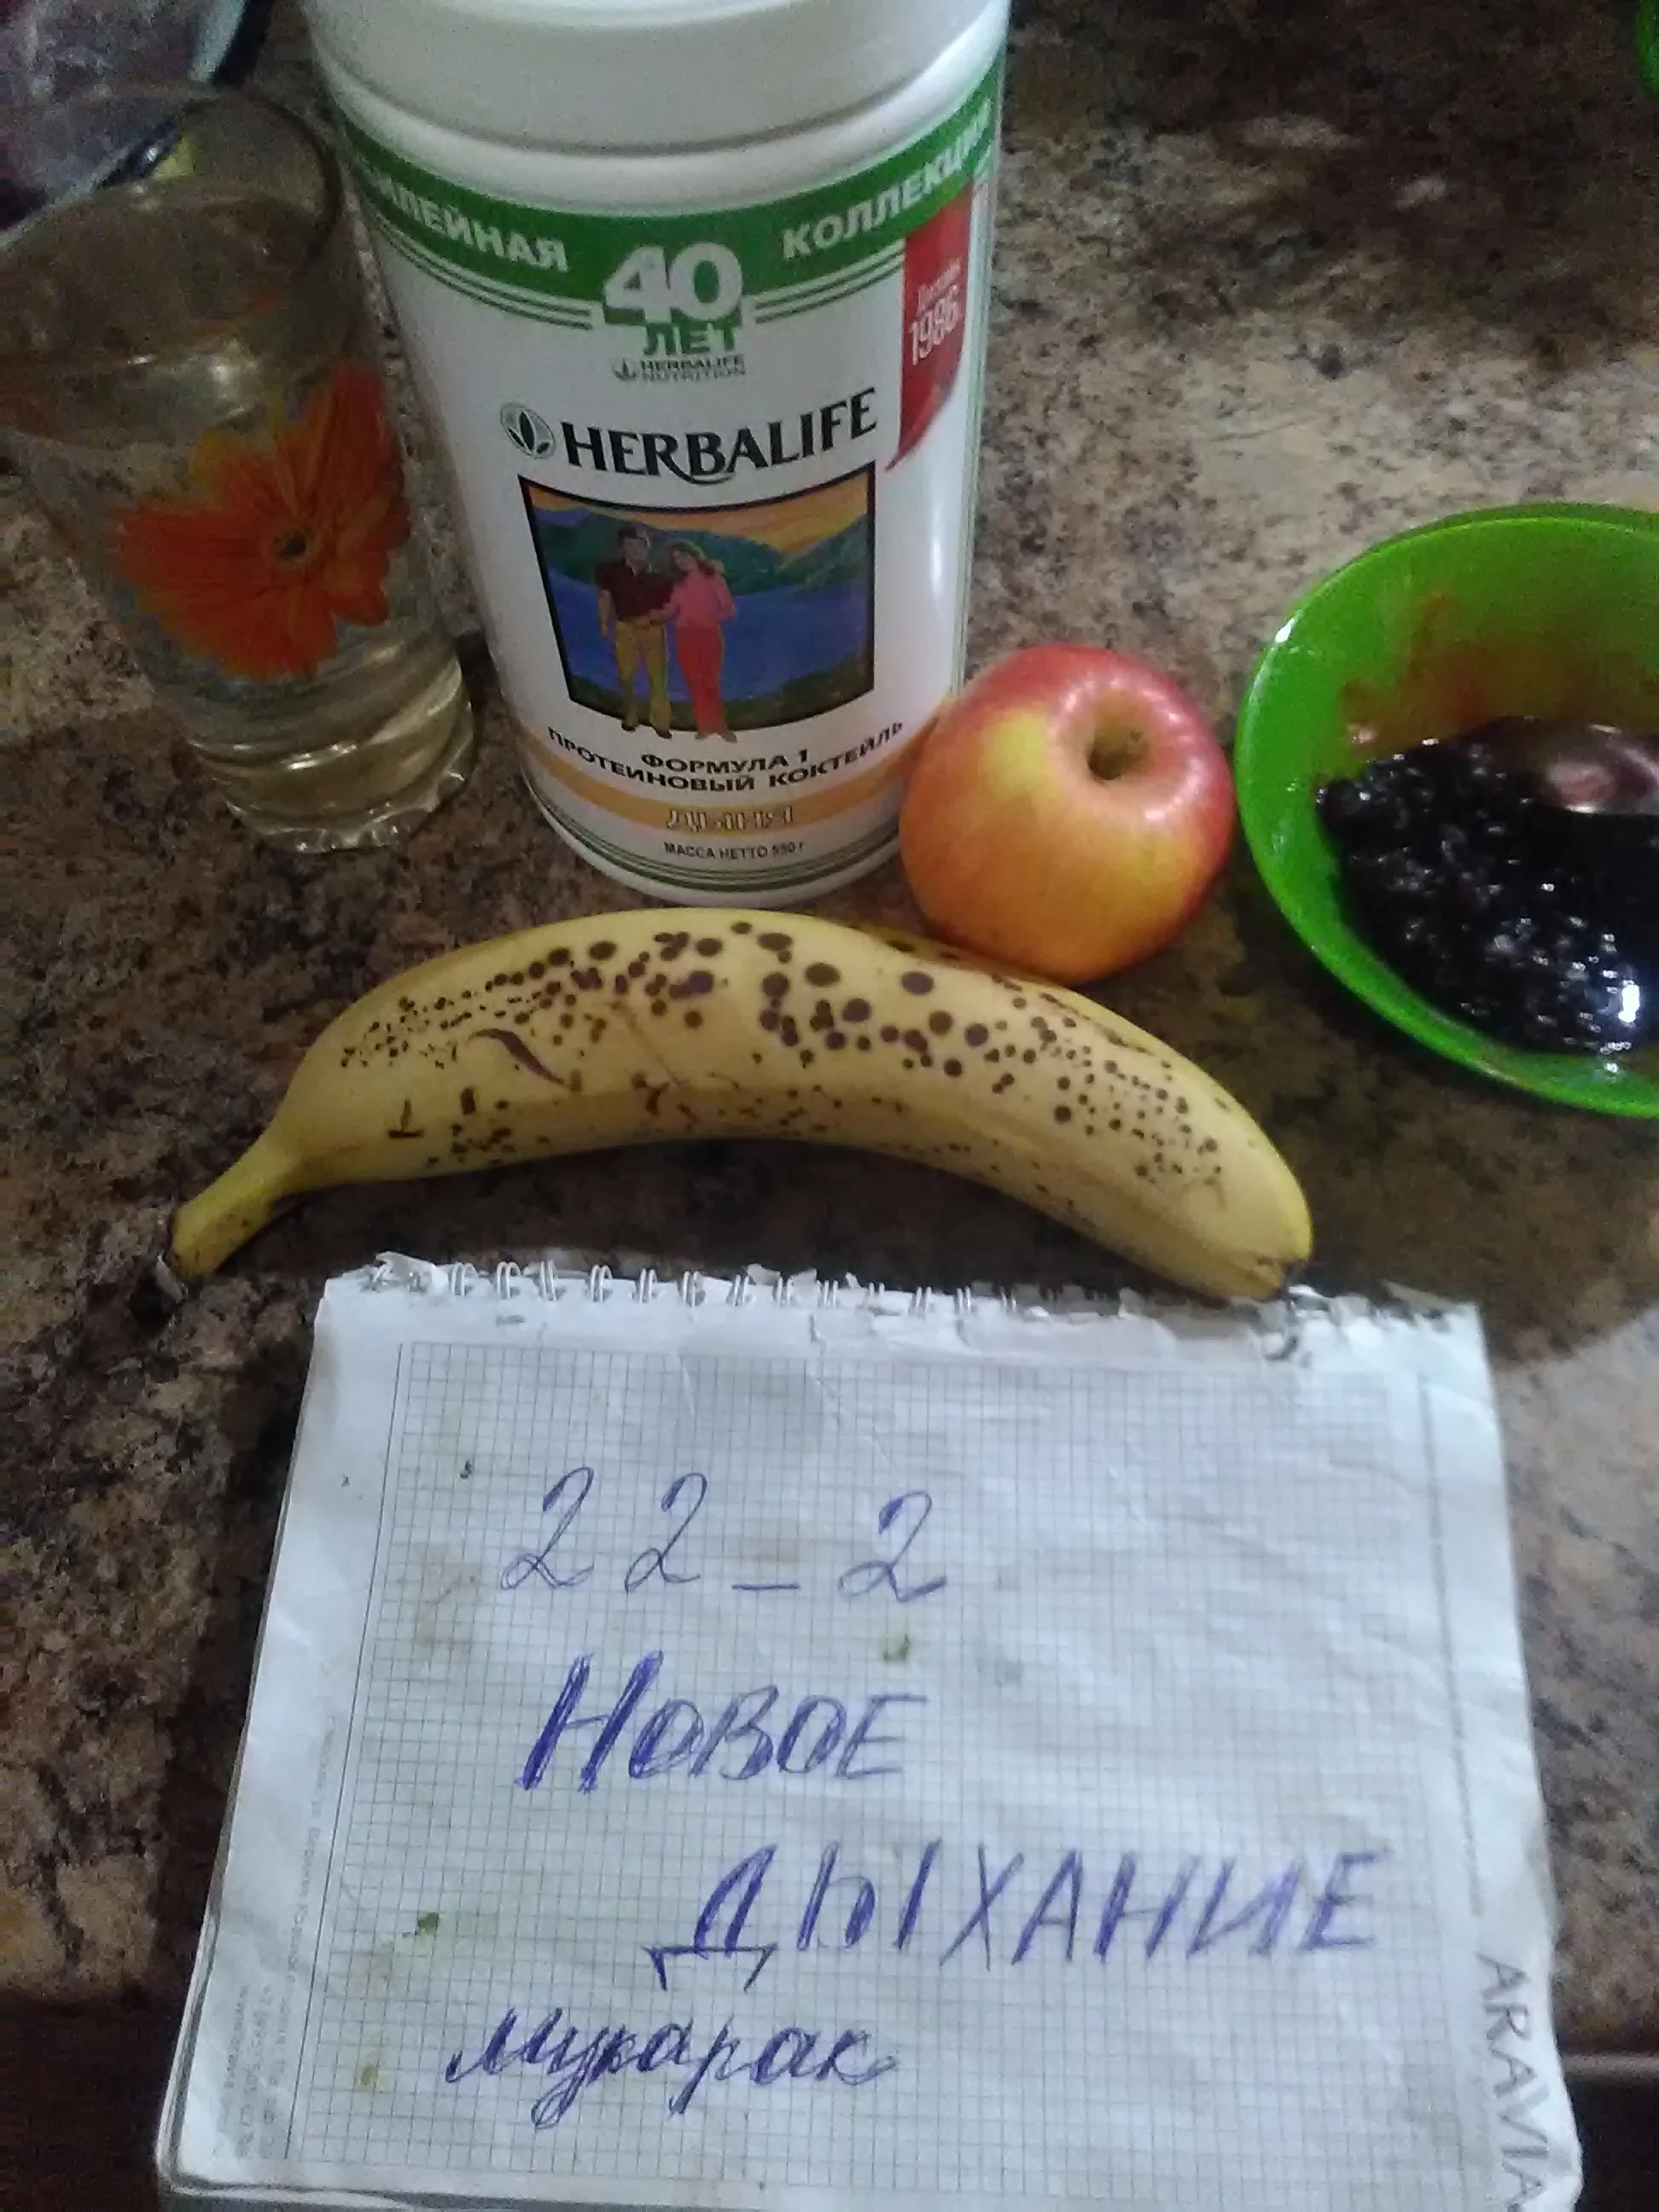 40
КОЛЛЕКЦИ
ЛЕТ
HERBALIFE
NUTRITION
1986
HERBALIFE
ФОРМУЛА 1
ПРОТЕИНОВЫЙ КОКТЕЙЛЬ
МАССА НЕТТО 550 г
22 - 2
НОВОЕ
ДЫХАНИЕ
мукарак
ARAVIA